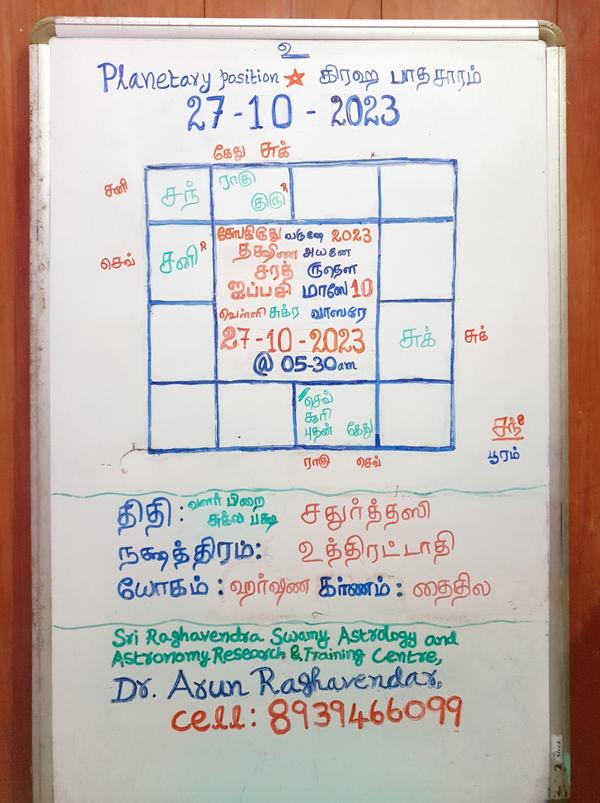 உ
Planetary position ☆ கிரஹ பாதசாரம்
27-10-2023
கேது சுக்
சனி சந் ராகு
குரு R
செவ் சனி R
சோபகிருது வருஷே 2023
தக்ஷிண அயனே
சரத் ருதௌ
ஐப்பசி மாஸே 10
வெள்ளி சுக்ர வாஸரே
27-10-2023
@ 05-30am
சுக் சுக்
செவ்
சூரி
புதன் கேது
ராகு செவ்
சந்
பூரம்
திதி: வளர் பிறை
சுக்ல பக்ஷ சதுர்த்தஸி
நக்ஷத்திரம்: உத்திரட்டாதி
யோகம்: ஹர்ஷண கர்ணம்: தைதில
Sri Raghavendra Swamy Astrology and
Astronomy Research & Training Centre,
Dr. Arun Raghavendar,
cell: 8939466099